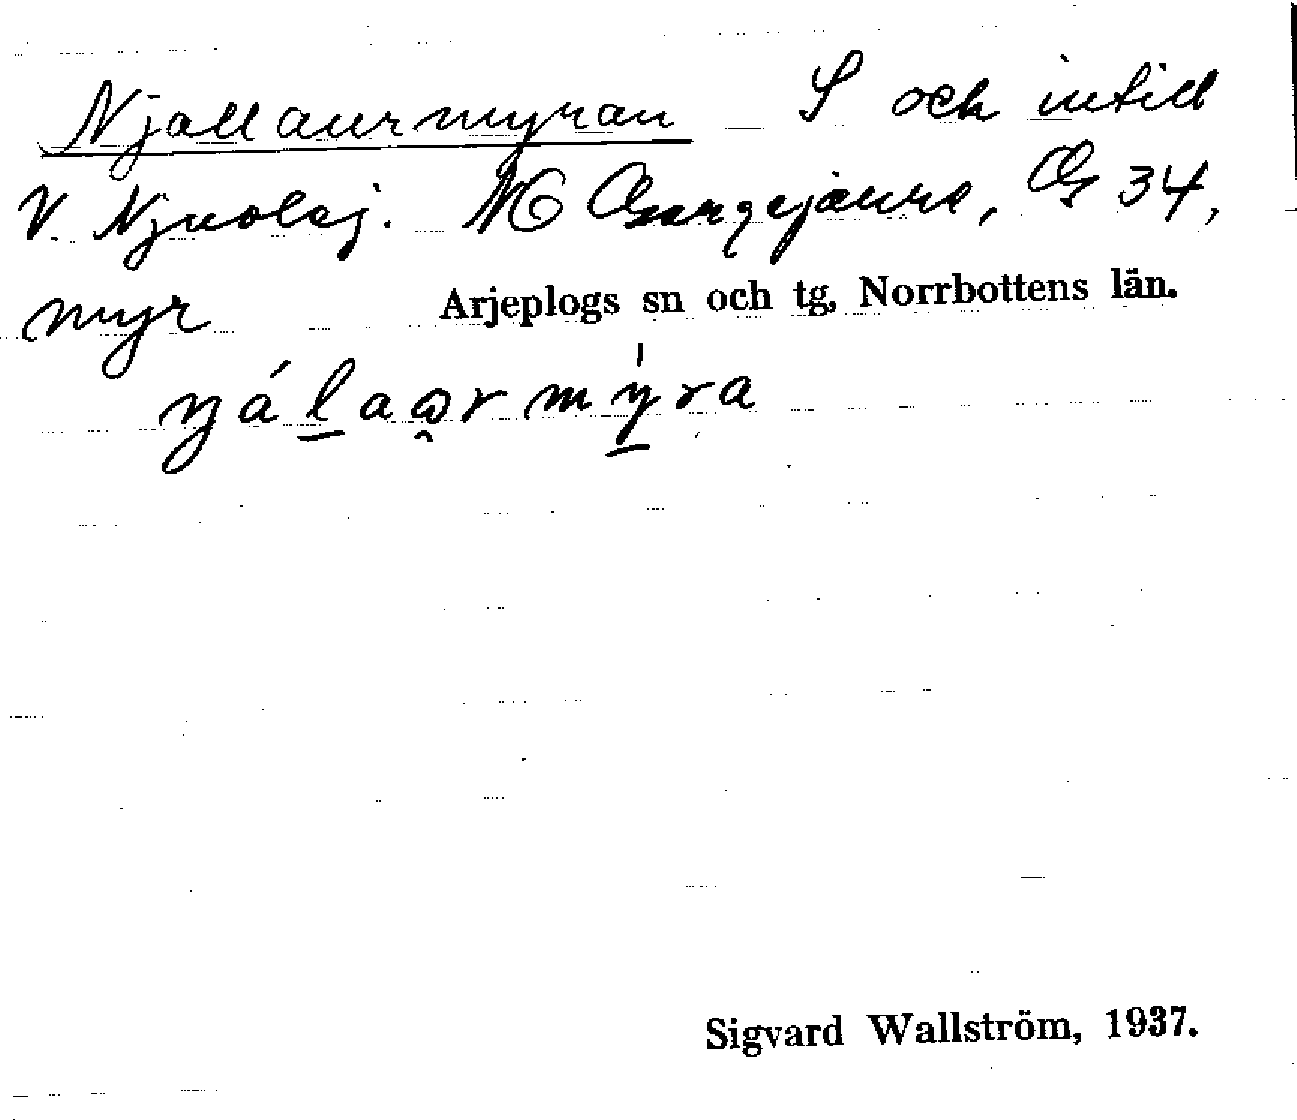 Njallaurmyran S och intill
V. Njuolaj. NO jaure, G 34,
myr Arjeplogs sn och tg, Norrbottens län.
Sigvard Wallström, 1937.